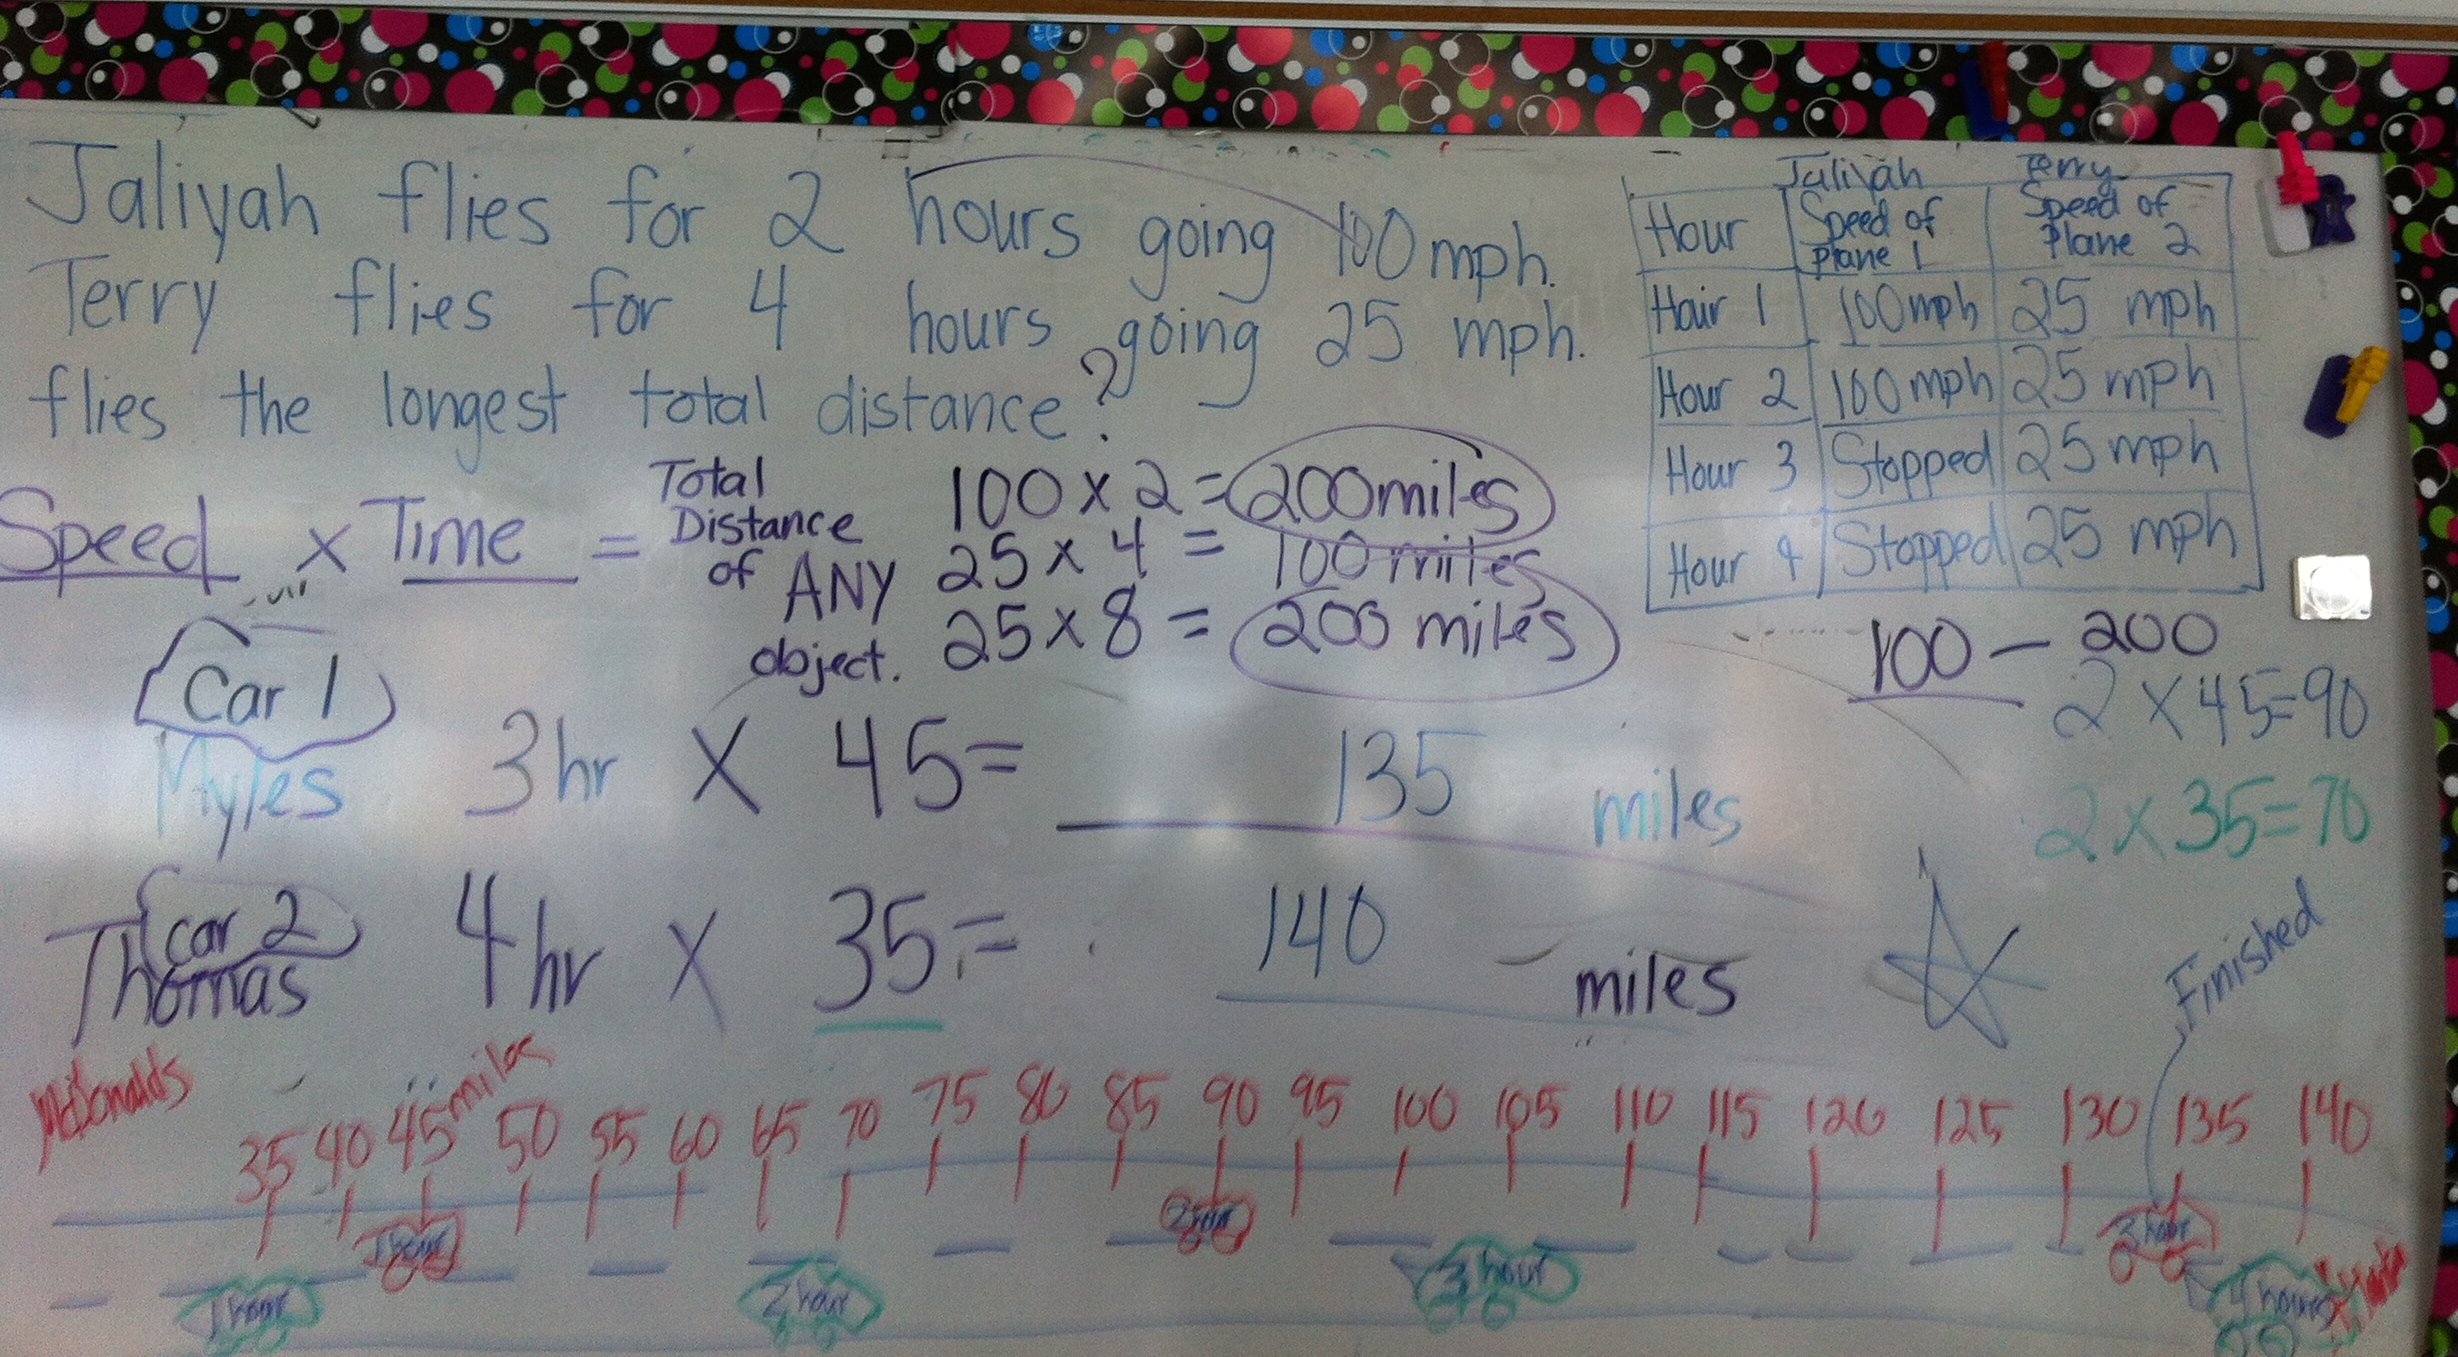 Jaliyah flies for 2 hours going 100 mph.
Terry flies for 4 hours going 25 mph.
flies the longest total distance?
Speed x Time = Total Distance of ANY object.
100 x 2 = 200 miles
25 x 4 = 100 miles
25 x 8 = 200 miles
Jaliyah Terry
Hour Speed of Plane 1 Speed of Plane 2
Hour 1 100 mph 25 mph
Hour 2 100 mph 25 mph
Hour 3 Stopped 25 mph
Hour 4 Stopped 25 mph
100 - 200
2 x 45=90
2 x 35=70
Car 1
Myles 3 hr x 45= 135 miles
Car 2
Thomas 4 hr x 35= 140 miles
Finished
McDonalds
35 40 45 miles 50 55 60 65 70 75 80 85 90 95 100 105 110 115 120 125 130 135 140
1 hour 2 hour 3 hour
1 hour 2 hour 3 hour 4 hours